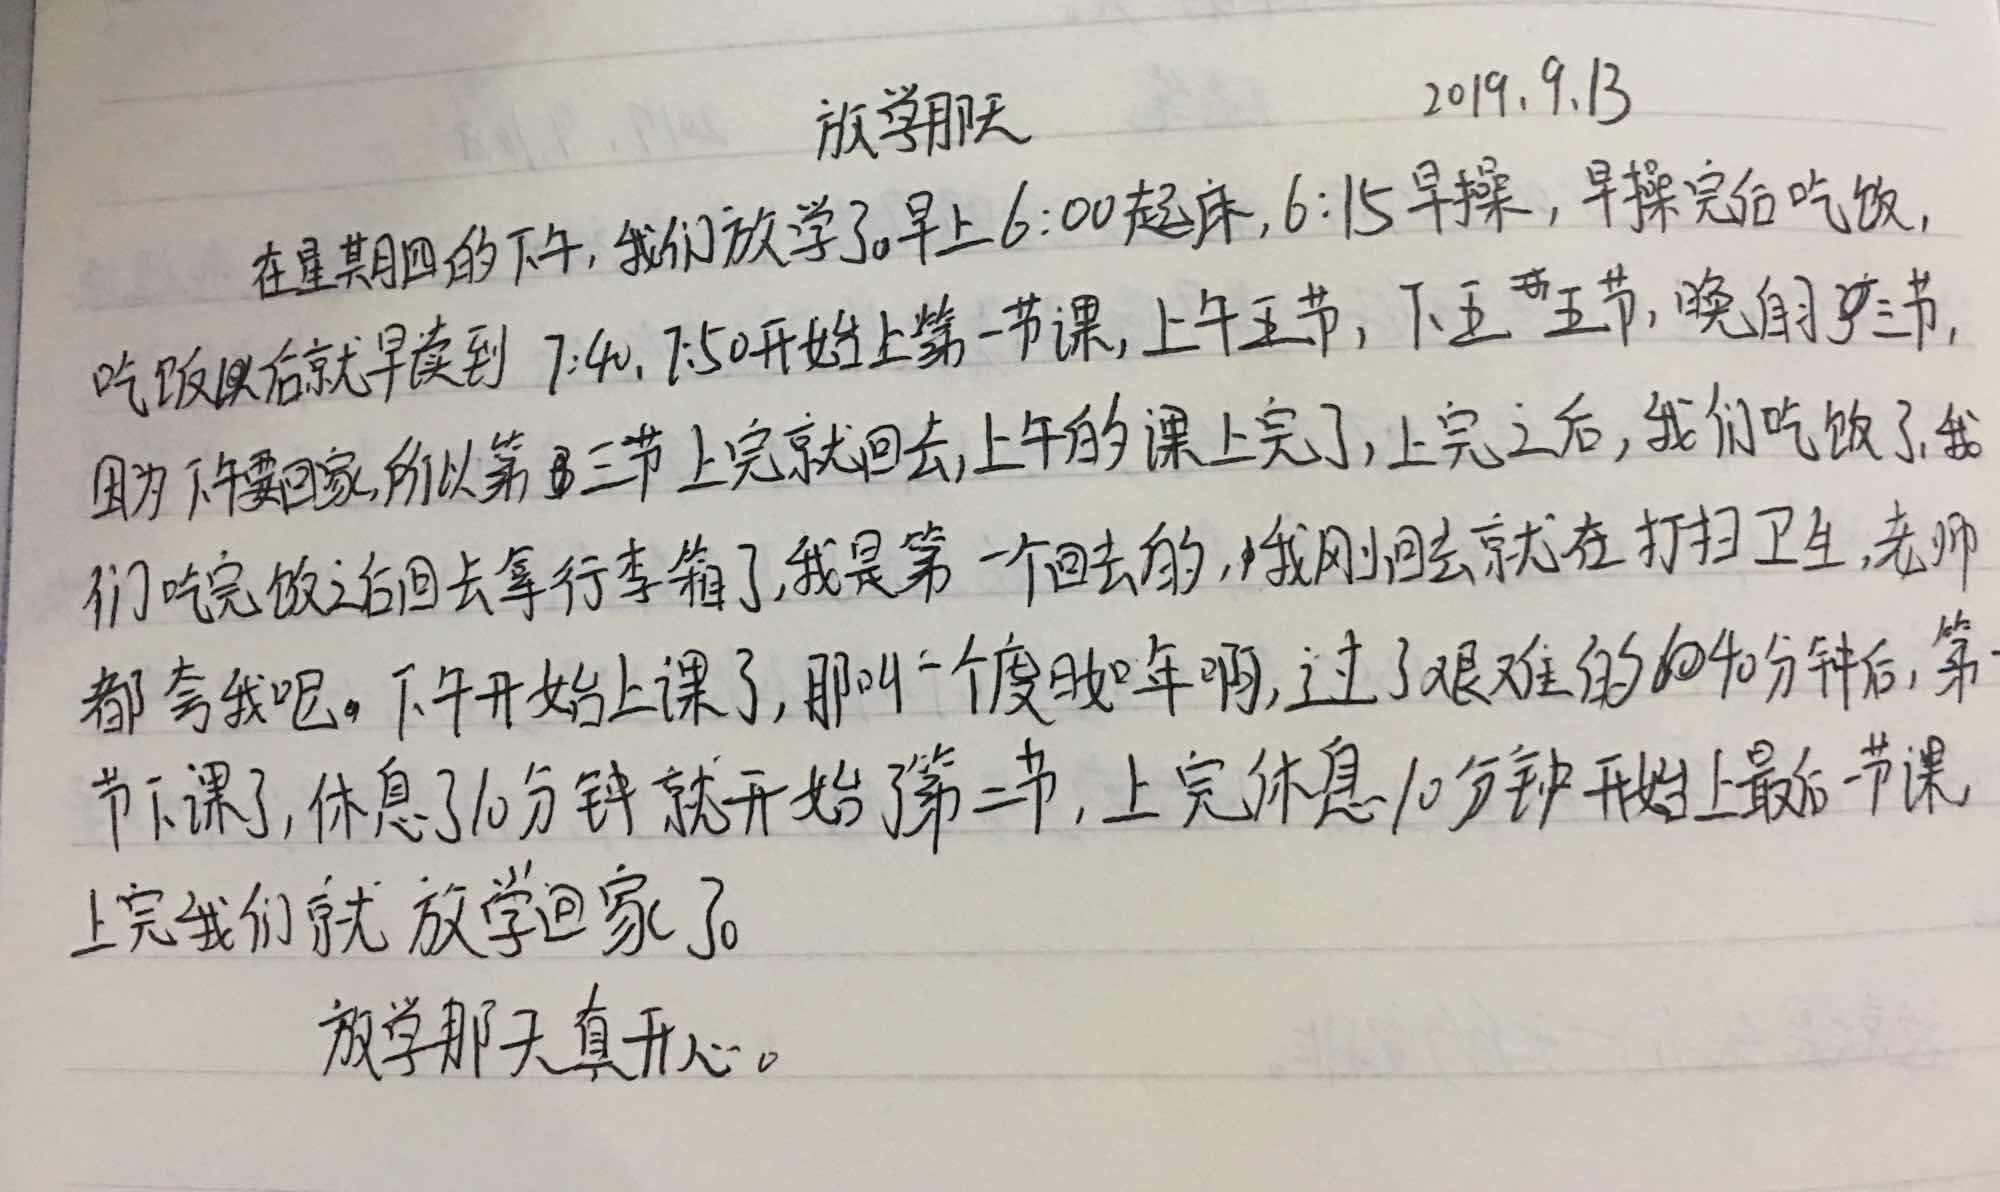 放学那天 2019.9.13
在星期四的下午,我们放学了。早上6:00起床,6:15早操,早操完后吃饭,
吃饭以后就早读到7:40,7:50开始上第一节课,上午五节,下五五节,晚自习三节,
因为下午要回家,所以第三节上完就回去,上午的课上完了,上完之后,我们吃饭了,我
们吃完饭之后回去拿行李箱了,我是第一个回去的,我刚回去就在打扫卫生,老师
都夸我呢。下午开始上课了,那叫一个度日如年啊,过了艰难的40分钟后,第一
节下课了,休息了10分钟就开始了第二节,上完休息10分钟开始上最后一节课,
上完我们就放学回家了。
放学那天真开心。